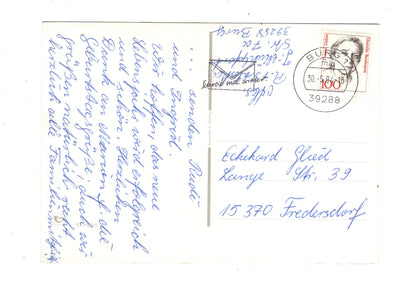 ... senden Rudi
und Ingrid.
Wir hoffen, das neue
Lebensjahr wird erfolgreich
und schön. Herzlichen
Dank an Marion f. die
Geburtstagsgrüße. Auch wir
grüßen natürlich recht
herzlich alle Familienmitgl.
Abs.
39288 Burg
Schreib mal wieder
BURG
30.-5.94
39288
Deutsche Bundespost
100
Eckehard Glied
Lange Str. 39
15 370 Fredersdorf